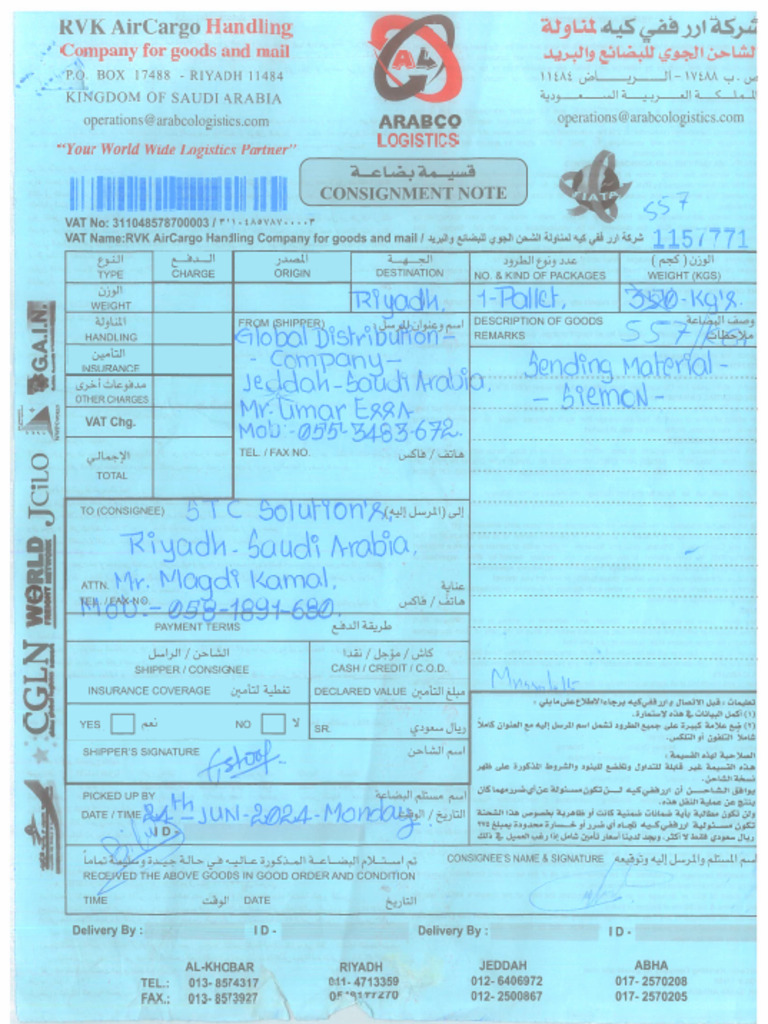 RVK AirCargo Handling
Company for goods and mail
P.O. BOX 17488 - RIYADH 11484
KINGDOM OF SAUDI ARABIA
operations@arabcologistics.com
"Your World Wide Logistics Partner"
ARABCO
LOGISTICS
شركة ارر ففي كيه لمناولة
الشاحن الجوي للبضائع والبريد
ص.ب ١٧٤٨٨ - الـريـاض ١١٤٨٤
المملكة العربية السعودية
operations@arabcologistics.com
قسيمة بضاعة
CONSIGNMENT NOTE
FIATA
557
VAT No: 311048578700003 / ٣١١٠٤٨٥٧٨٧٠٠٠٠٣
VAT Name:RVK AirCargo Handling Company for goods and mail / شركة ارر ففي كيه لمناولة الشحن الجوي للبضائع والبريد
1157771
النوع
TYPE
الدفع
CHARGE
المصدر
ORIGIN
الجهة
DESTINATION
عدد ونوع الطرود
NO. & KIND OF PACKAGES
الوزن ( كجم )
WEIGHT (KGS)
الوزن
WEIGHT
Riyadh,
1-Pallet,
350-Kg's.
المناولة
HANDLING
التأمين
INSURANCE
مدفوعات أخرى
OTHER CHARGES
VAT Chg.
الإجمالي
TOTAL
FROM (SHIPPER) اسم وعنوان المرسل
Global Distribution-
- Company-
Jeddah-Saudi Arabia,
Mr. Umar Essa
Mob:-055-3483-672.
TEL. / FAX NO. هاتف / فاكس
DESCRIPTION OF GOODS وصف البضاعة
REMARKS ملاحظات
Sending Material-
- Siemon-
TO (CONSIGNEE) إلى (المرسل إليه)
STC Solution's,
Riyadh-Saudi Arabia,
ATTN. Mr. Magdi Kamal, عناية
TEL. / FAX NO. هاتف / فاكس
Mob:-058-1891-680.
PAYMENT TERMS طريقة الدفع
الشاحن / الراسل
SHIPPER / CONSIGNEE
كاش / مؤجل / نقدا
CASH / CREDIT / C.O.D.
INSURANCE COVERAGE تغطية لتأمين
DECLARED VALUE مبلغ التأمين
YES نعم NO لا
SR. ريال سعودي
SHIPPER'S SIGNATURE اسم الشاحن
PICKED UP BY اسم مستلم البضاعة
DATE / TIME التاريخ / الوقت
24th-JUN-2024-Monday.
I D -
تعليمات ، قبل الاتصال بـ ارر ففي كيه برجاء الاطلاع على مايلي ،
(١) أكمل البيانات في هذه لاستمارة.
(٢) ضع علامة كبيرة على جميع الطرود تشمل اسم المرسل إليه مع العنوان كاملاً
شاملاً التلفون أو التلكس.
الصلاحية لهذه القسيمة ،
هذه القسيمة غير قابلة للتداول وتخضع للبنود والشروط المذكورة على ظهر
نسخة الشاحن.
يوافق الشاحن أن ارر ففي كيه لن تكون مسئولة عن أي ضرر مهما كان
ينتج عن عملية النقل هذه.
ولن تكون مطالبة بأية ضمانات ضمنية كانت أو ظاهرية بخصوص هذا الشحنة
تكون مسئولية ارر ففي كيه تجاه اي ضرر أو خسارة محدودة بمبلغ ٢٧٥
ريال سعودي فقط لا أكثر. ويجد لدينا أسعار تأمين شامل إذا رغب العميل في ذلك
تم استلام البضاعة المذكورة عاليه في حالة جيدة وسليمة تماماً
RECEIVED THE ABOVE GOODS IN GOOD ORDER AND CONDITION
TIME الوقت DATE التاريخ
CONSIGNEE'S NAME & SIGNATURE اسم المستلم والمرسل إليه وتوقيعه
Delivery By : I D - Delivery By : I D -
AL-KHOBAR RIYADH JEDDAH ABHA
TEL.: 013- 8574317 011- 4713359 012- 6406972 017- 2570208
FAX.: 013- 8573927 012- 2500867 017- 2570205
G.A.I.N.
JCiLO
WORLD
FREIGHT NETWORK
CGLN